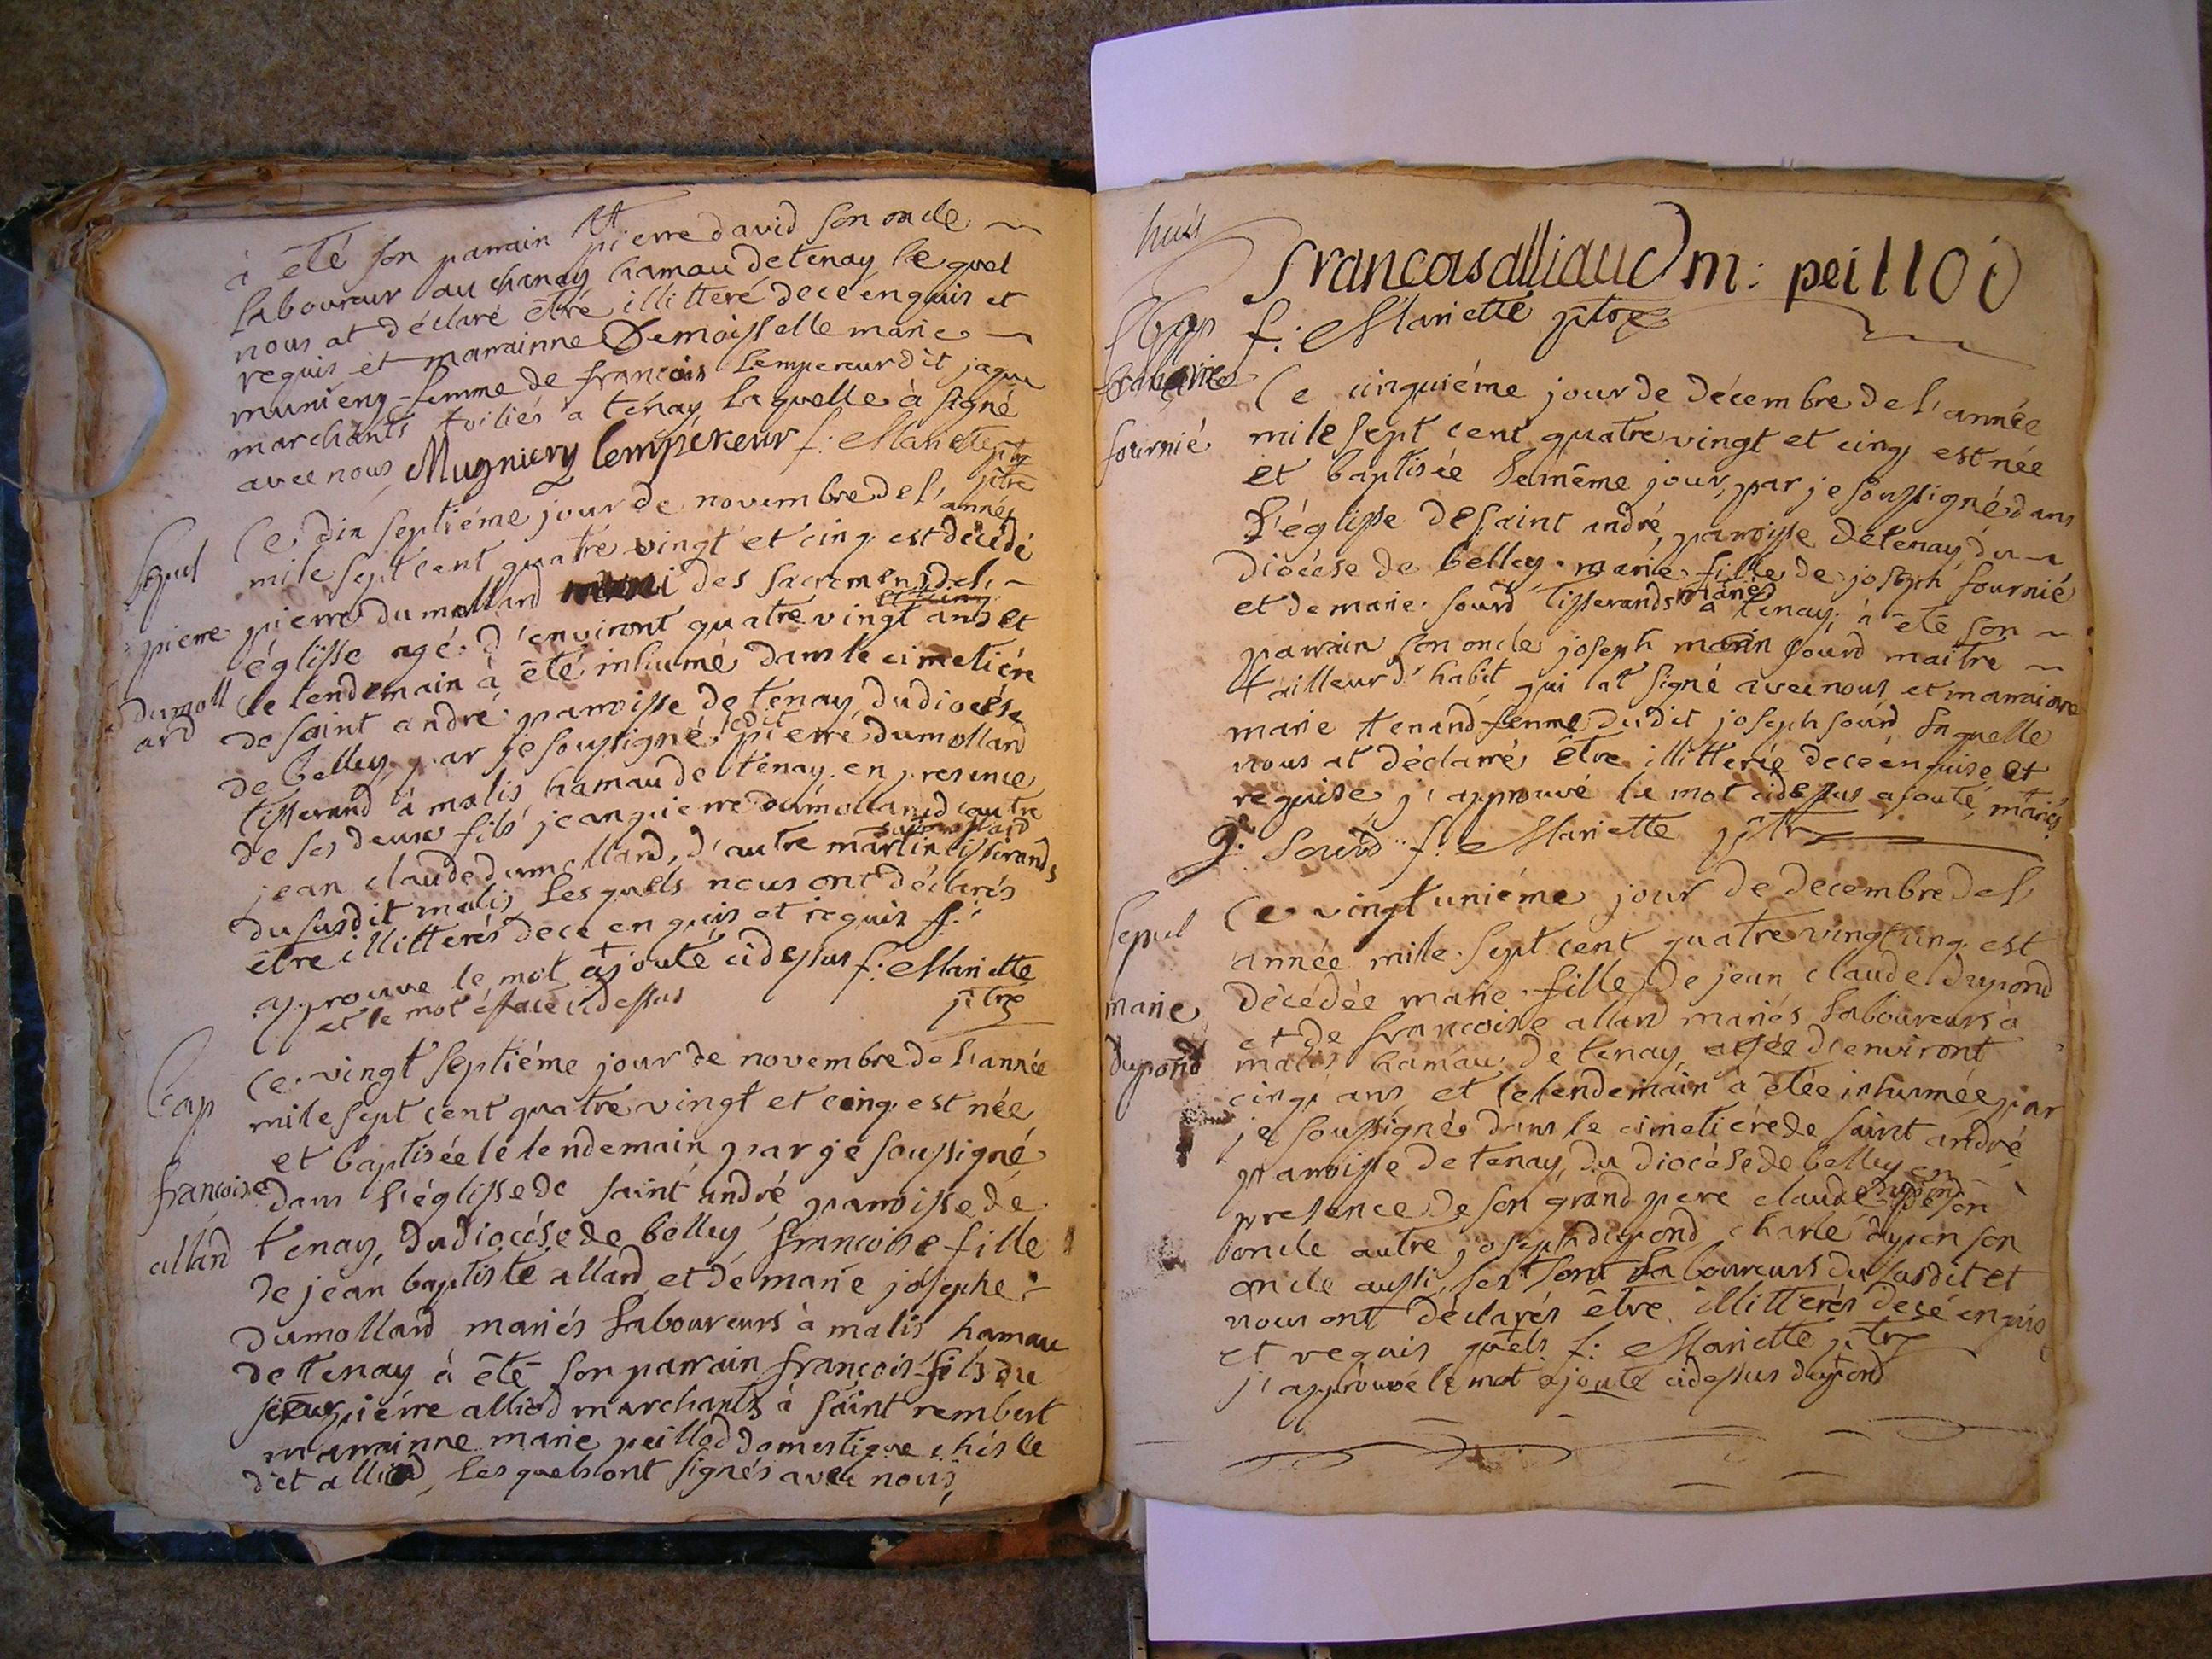 à été son parrain pierre david son oncle
laboureur au chanay hamau de tenay le quel
nous at déclaré être illitteré de ce enquis et
requis et marrainne Demoisselle marie
munieny femme de francois Lempereur dit jaque
marchants toiliés a tenay laquelle à signé
avec nous Mugniery lempereur f: Mariette ptre
Sepul
pierre
dumoll
ard
Ce dix septiéme jour de novembre del' année
mile sept cent quatre vingt et cinq est décédé
pierre dumollard muni des sacremens del'
église agé d'environt quatre vingt ans et
le lendemain à été inhumé dans le cimetiére
de saint andré paroisse de tenay, du diocése
de belley par je soussigné ledit pierre dumollard
tisserand à malis hamau de tenay. en presence
de ses deux fils jean pierre dumollard l'autre
jean claude dumollard, d'autre martin dumollard tisserands
du susdit malis Lesquels nous ont déclarés
être illitterés de ce enquis et requis f:
approuve le mot ajouté cidessus f: Mariette
et le mot éfacé cidessus ptre
bap
francoise
alland
Ce vingt septiéme jour de novembre de l'année
mile sept cent quatre vingt et cinq est née
et baptisée le lendemain par je soussigné
dans l'église de saint andré paroisse de
tenay, du diocése de belley francoise fille
de jean baptiste alland et de marie josephe
dumollard mariés laboureurs à malis hamau
de tenay à été son parrain francois fils du
sieur pierre alliod marchants à saint rembert
marrainne marie peillod domestique chés le
dit alliod, Lesquels ont signés avec nous,
huit
francoisalliaud m: peillod
f: Mariette ptre
bap
marie
fournié
Ce cinquiéme jour de décembre de l'année
mile sept cent quatre vingt et cinq est née
et baptisée le même jour, par je soussigné dans
l'églisse de saint andré, paroisse de tenay du
diocése de belley. marie fille de joseph fournié
et de marie sourd tisserands mariés à tenay; à été son
parrain son oncle joseph marin sourd maitre
tailleur d'habit qui at signé avec nous et marrainne
marie tenand femme dudit joseph sourd laquelle
nous at déclarré être illitterée de ce énquise et
requise j'approuvé le mot cidessus ajouté mariés
J. Sourd f: Mariette ptre
Sepul
marie
dupond
Ce vingt uniéme jour de decembre del'
année mille sept cent quatre vingt cinq est
décédée marie fille de jean claude dupond
et de francoise alland mariés laboureurs à
malis hamau de tenay agée d'environt
cinq ans et le lendemain à étée inhumée par
je soussigné dans le cimetiére de saint andré
paroisse de tenay, du diocèse de belley en
presence de son grand pere claude dupond de son
oncle autre joseph dupond charle dupon son
oncle aussi, les sont laboureurs du susdit et
nous ont déclarés être illitterés de cé enquis
et requis f: Mariette ptre
j'approuve le mot ajouté cidessus dupond